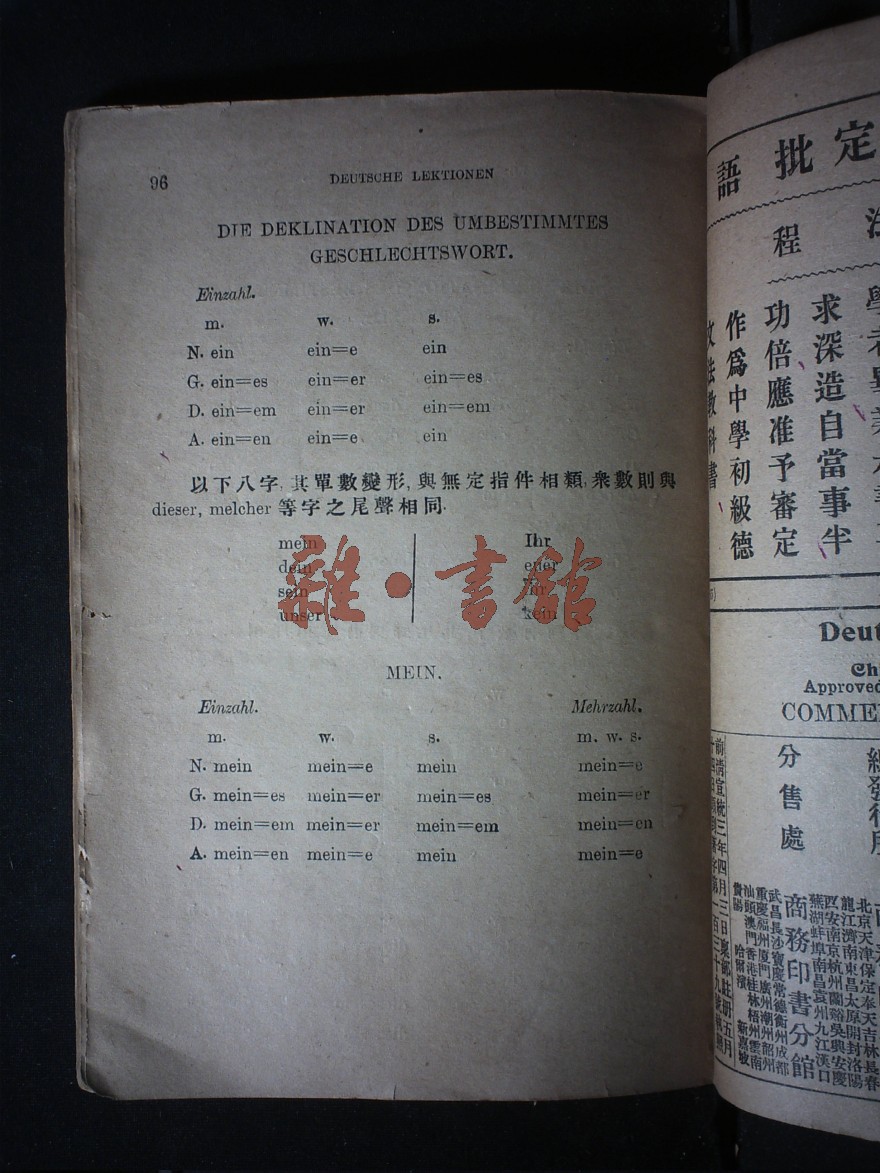 96
DEUTSCHE LEKTIONEN
DIE DEKLINATION DES UMBESTIMMTES
GESCHLECHTSWORT.
Einzahl.
m. w. s.
N. ein ein=e ein
G. ein=es ein=er ein=es
D. ein=em ein=er ein=em
A. ein=en ein=e ein
以下八字, 其單數變形, 與無定指件相類, 衆數則與
dieser, melcher 等字之尾聲相同.
mein Ihr
dein euer
sein ihr
unser kein
雜·書館
MEIN.
Einzahl. Mehrzahl.
m. w. s. m. w. s.
N. mein mein=e mein mein=e
G. mein=es mein=er mein=es mein=er
D. mein=em mein=er mein=em mein=en
A. mein=en mein=e mein mein=e
定批語
程
求深造自當事半
功倍應准予審定
作爲中學初級德
文法教科書
Deut
Ch
Approved
COMME
分售處
商務印書分館
北京天津保定奉天吉林長春
龍江濟南東昌太原開封洛陽
西安南京杭州蘭谿吳興安慶
蕪湖蚌埠南昌袁州九江漢口
武昌長沙寶慶常德衡州成都
重慶福州厦門廣州潮州韶州
汕頭澳門香港桂林梧州雲南
貴陽 哈爾濱 新嘉坡